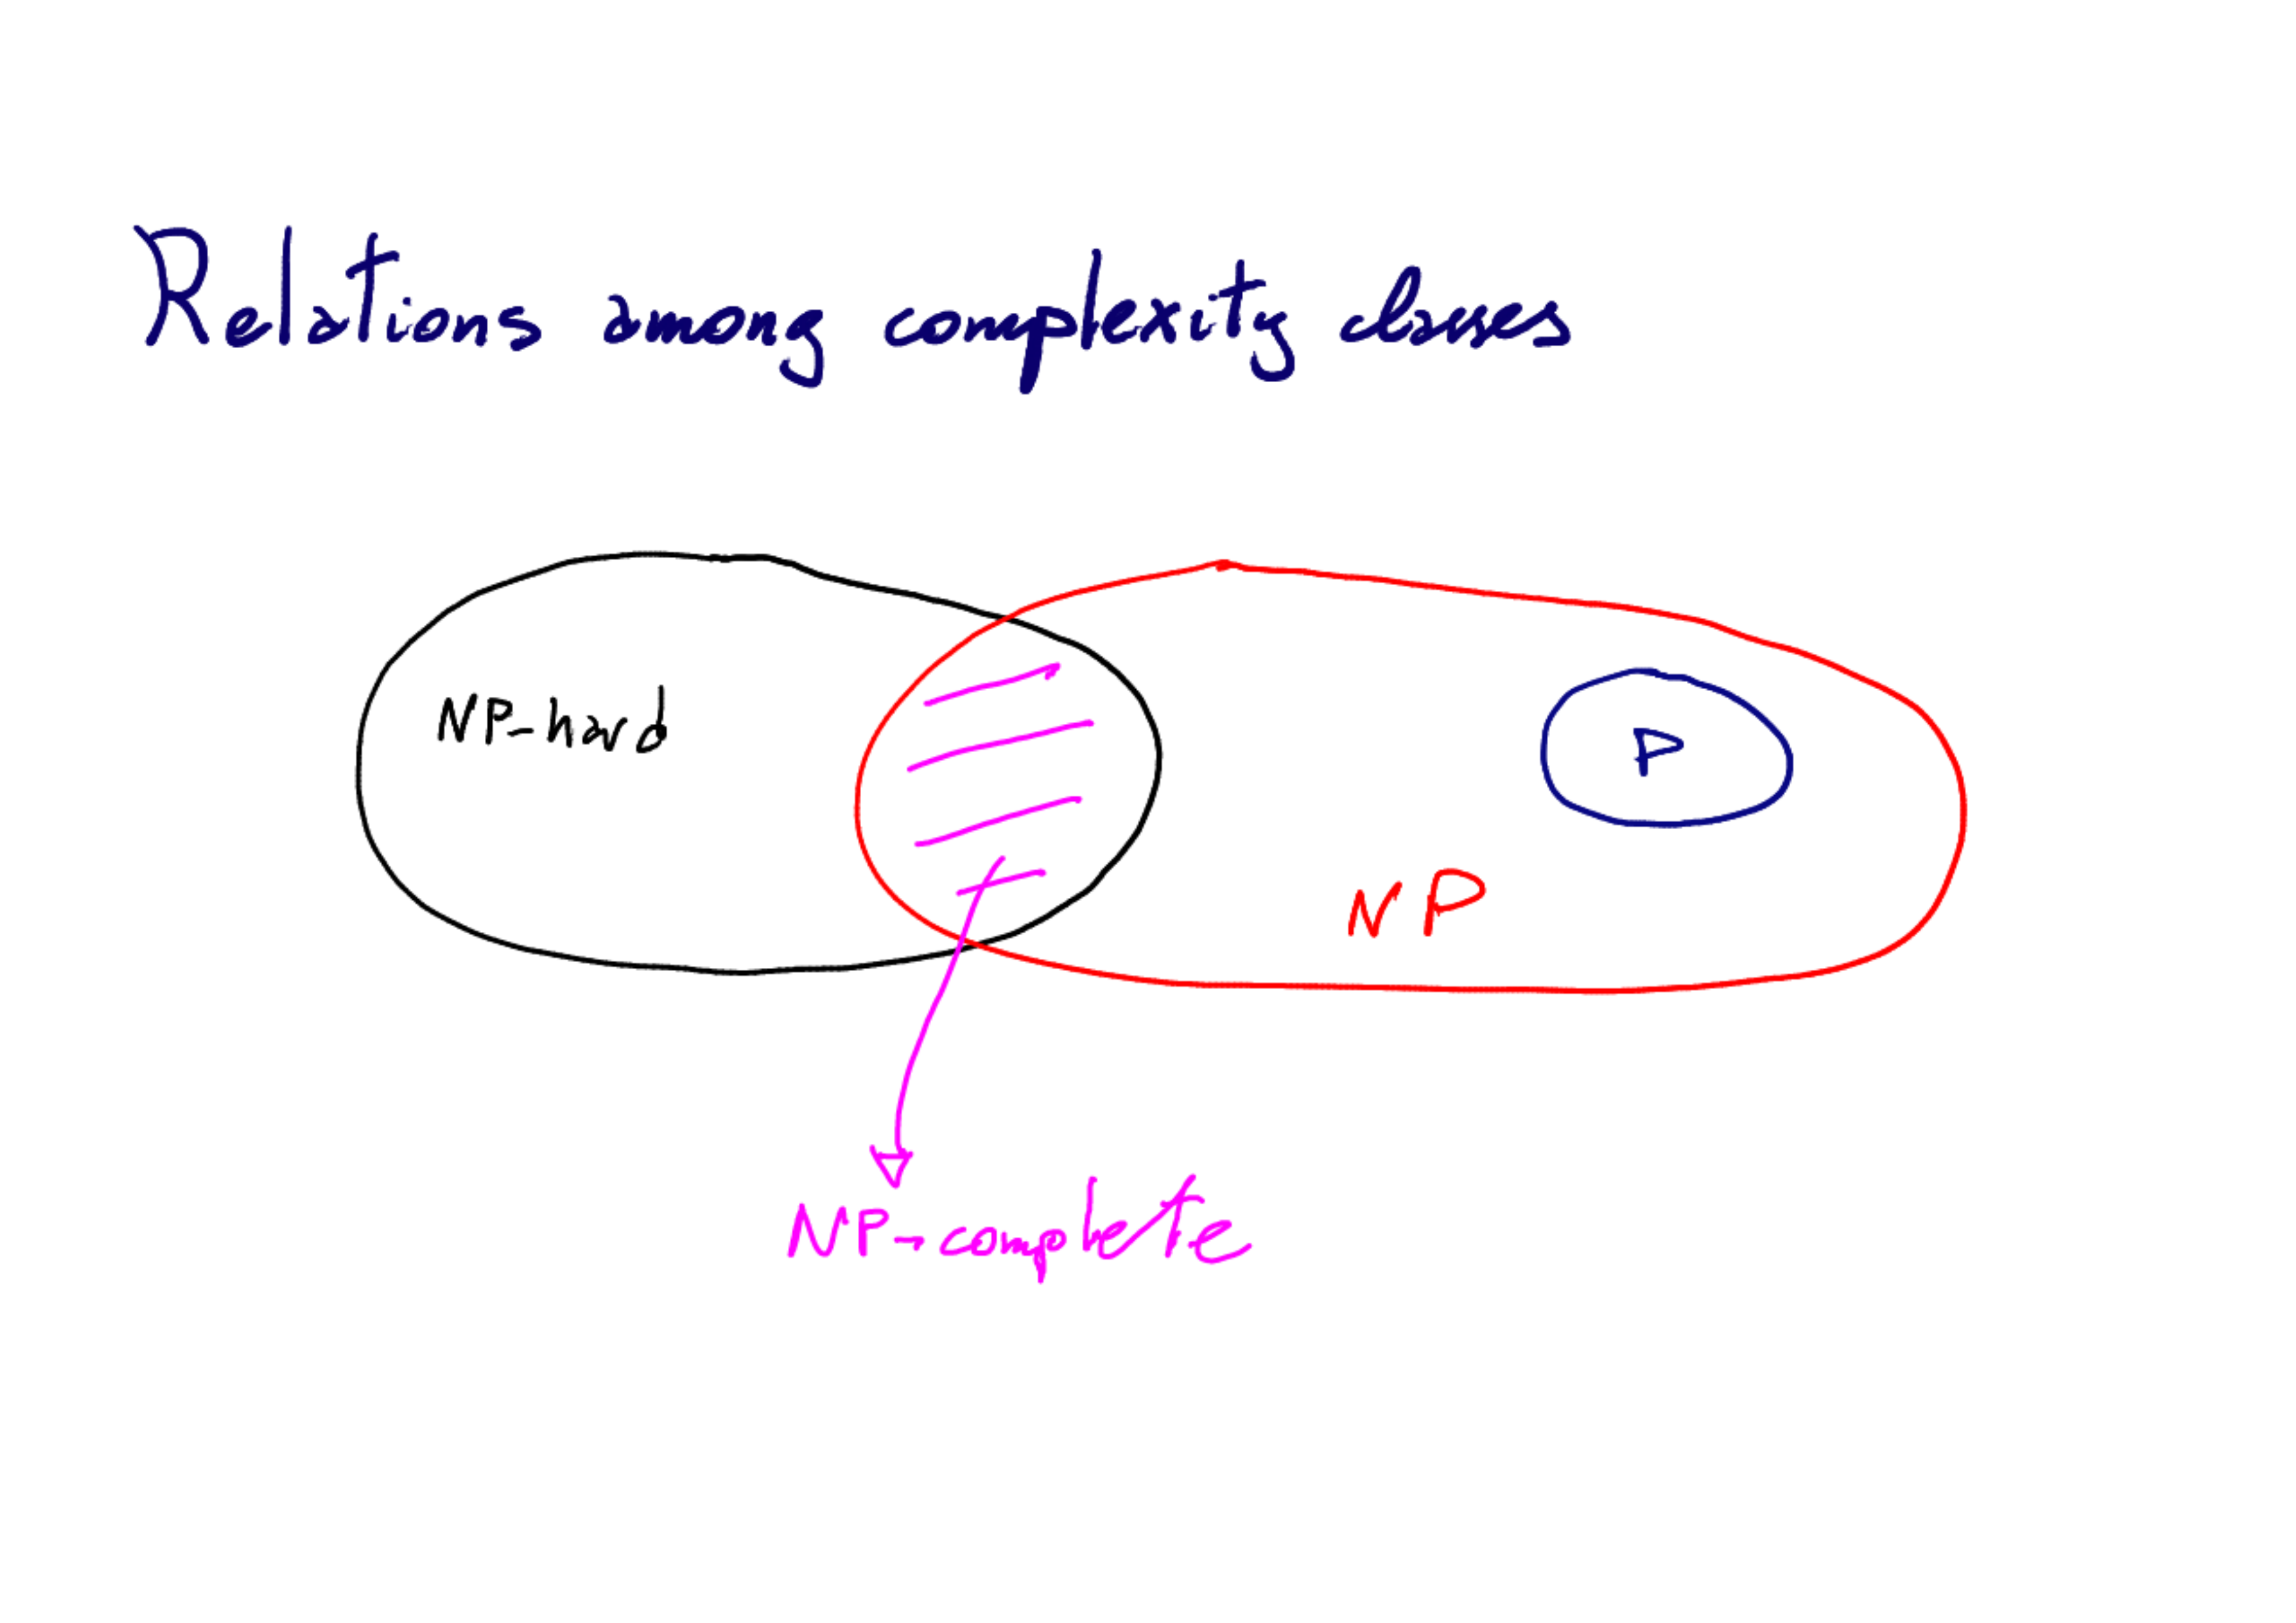 Relations among complexity classes
NP-hard
P
NP
NP-complete